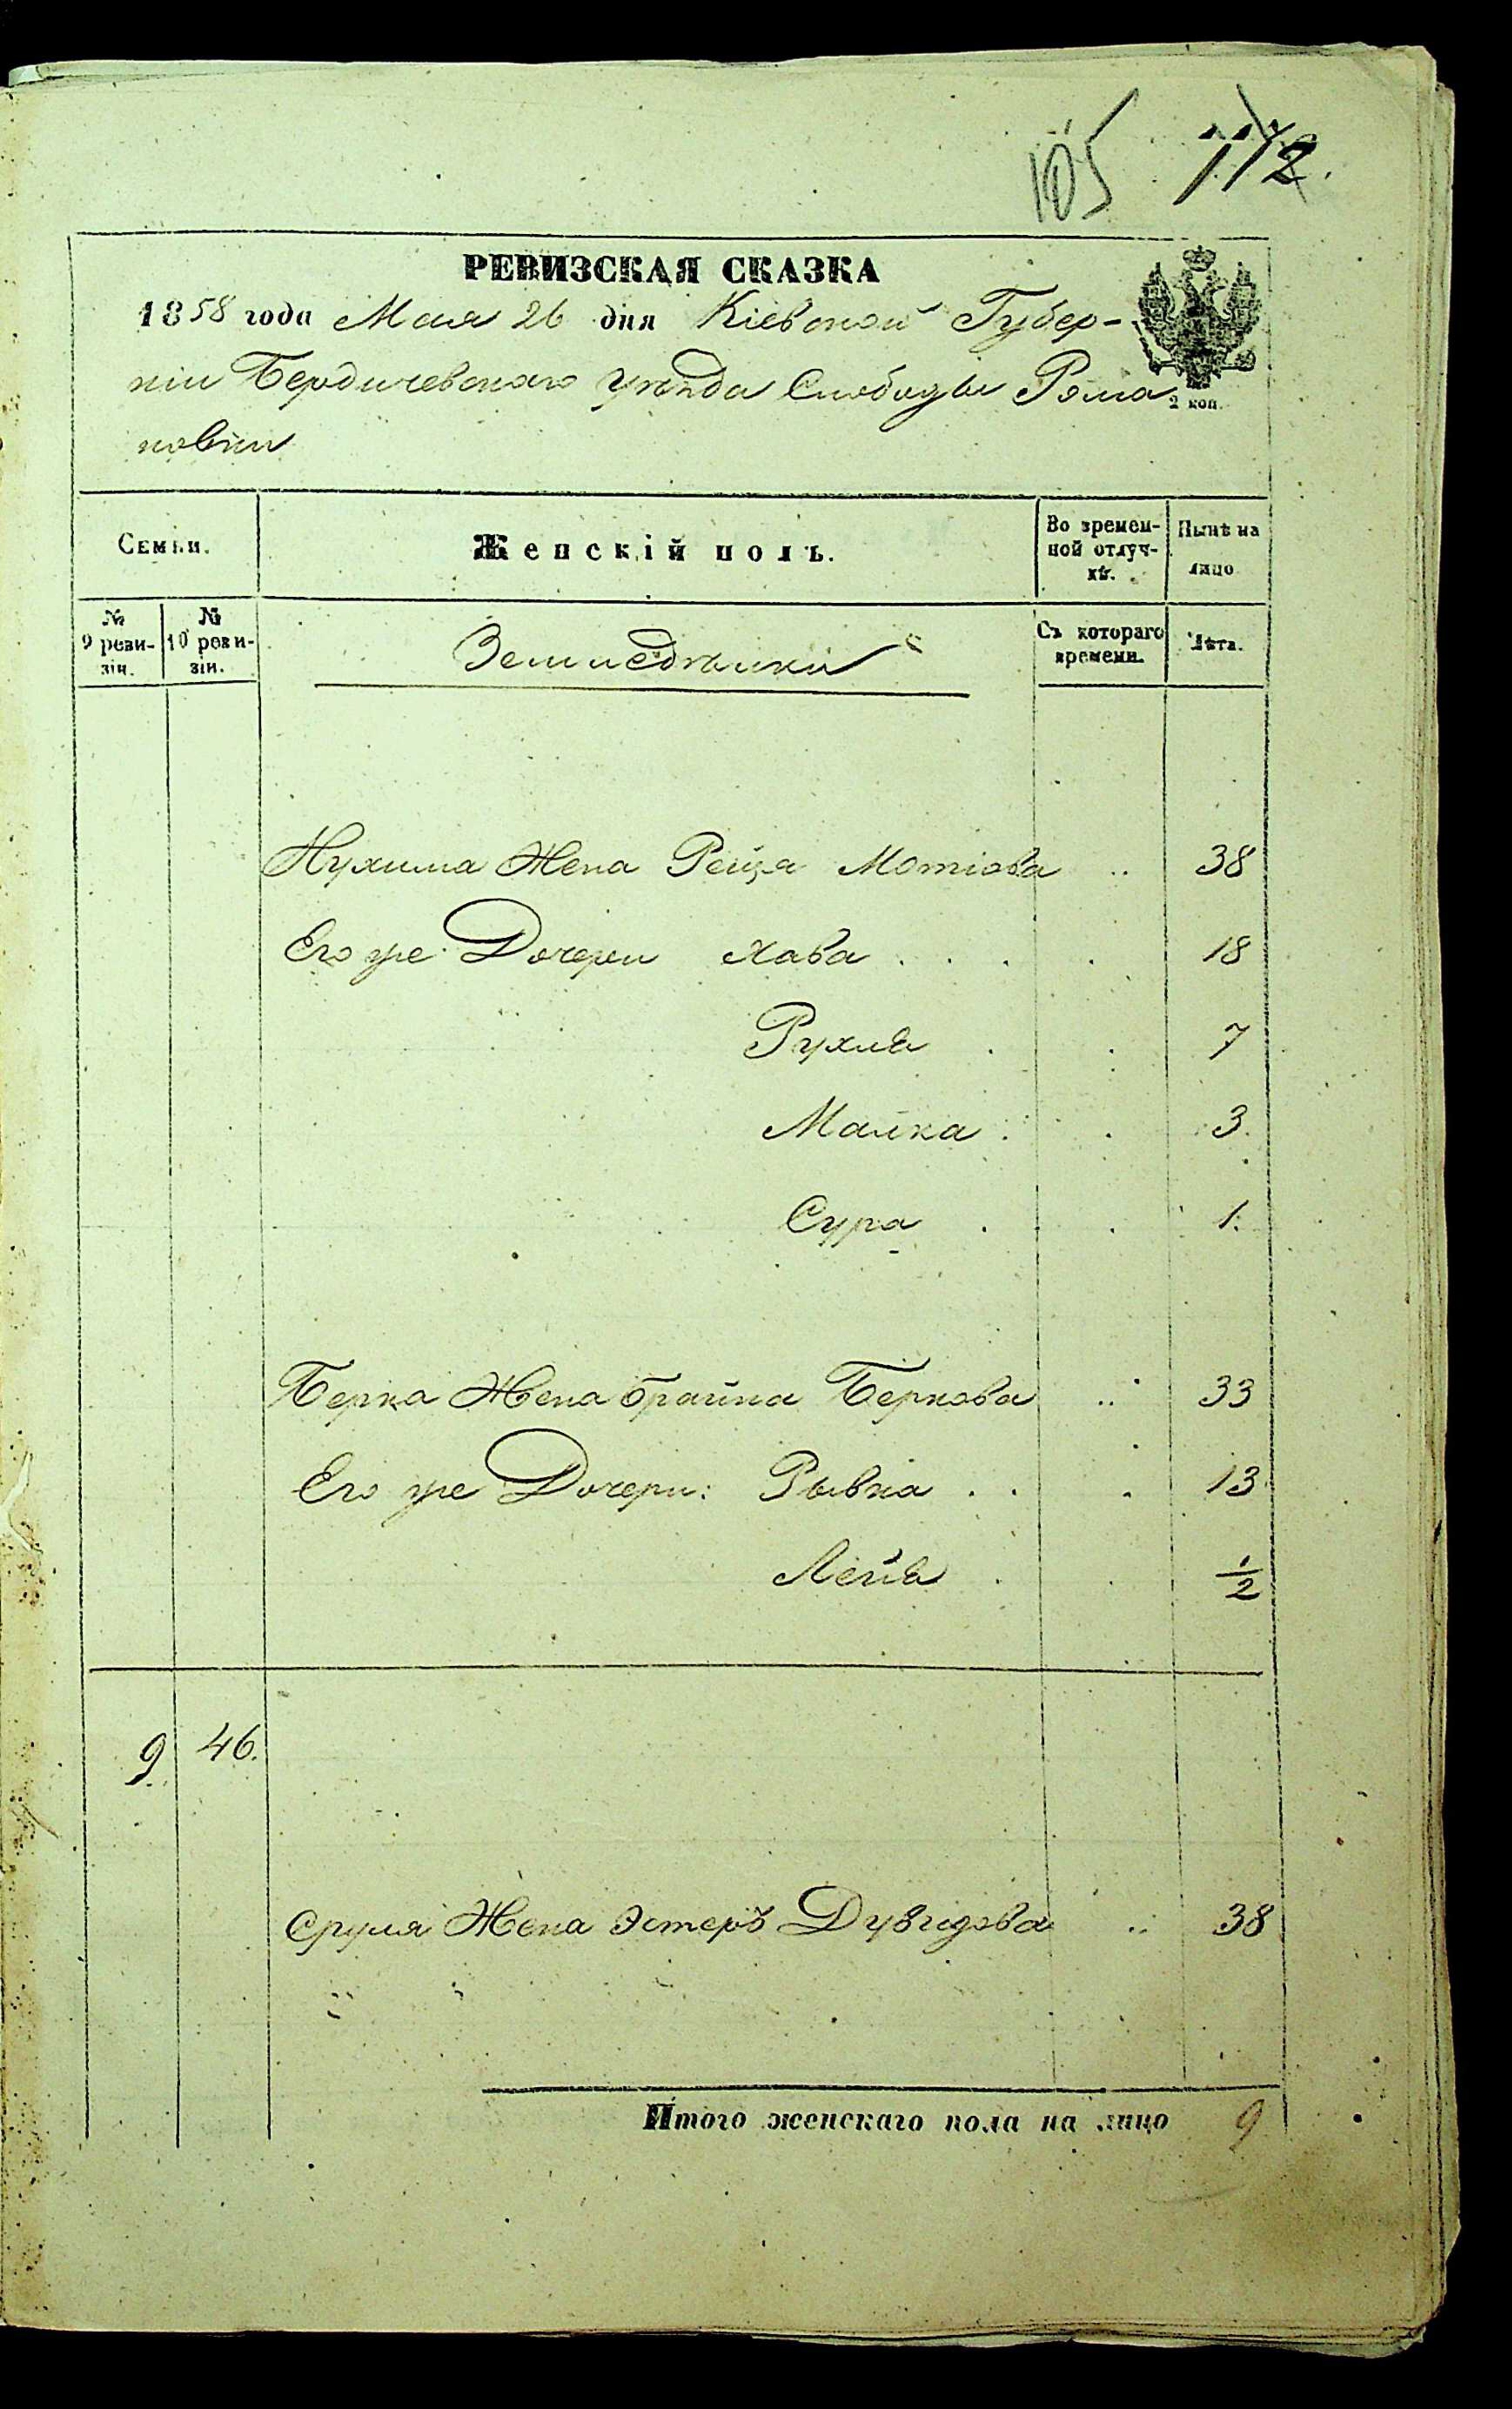 105 112.
РЕВИЗСКАЯ СКАЗКА
1858 года Мая 26 дня Кіевской Губер-
ніи Бердичевскаго Уѣзда Слободы Рома
новки
2 коп.
Семьи. Женскій полъ. Во времен-ной отлуч-кѣ. Нынѣ на лицо
№ 9 реви-зіи. № 10 реви-зіи. Земледѣльцы Съ котораго времени. Лѣта.
Нухима Жена Рейзя Мотіова 38
Его же Дочери Хава 18
Рухля 7
Малка 3.
Сура 1.
Берка Жена Брайна Беркова 33
Его же Дочери: Рывка 13
Лейа ½
9 46.
Сруля Жена Эстеръ Дувидова 38
Итого женскаго пола на лицо 9